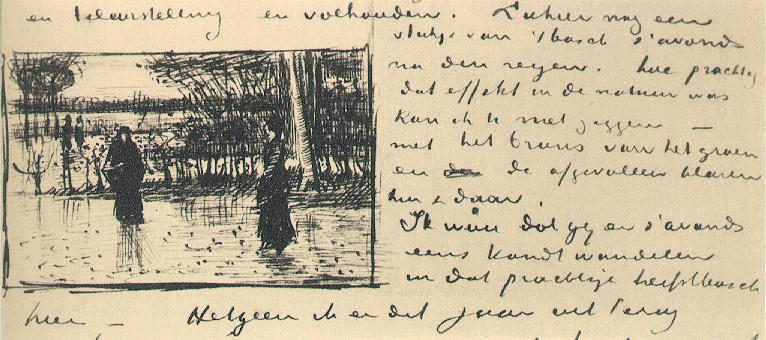 en teleurstelling en volhouden. Ziehier nog een
vlakje van 't bosch s'avonds
na den regen. hoe prachtig
dat effekt in de natuur was
kan ik U niet zeggen —
met het brons van het groen
en de afgevallen blaren
hier & daar.
Ik wou dat gij er s'avonds
eens kondt wandelen
in dat prachtige herfstbosch
hier — Hetgeen ik er dit jaar uit terug